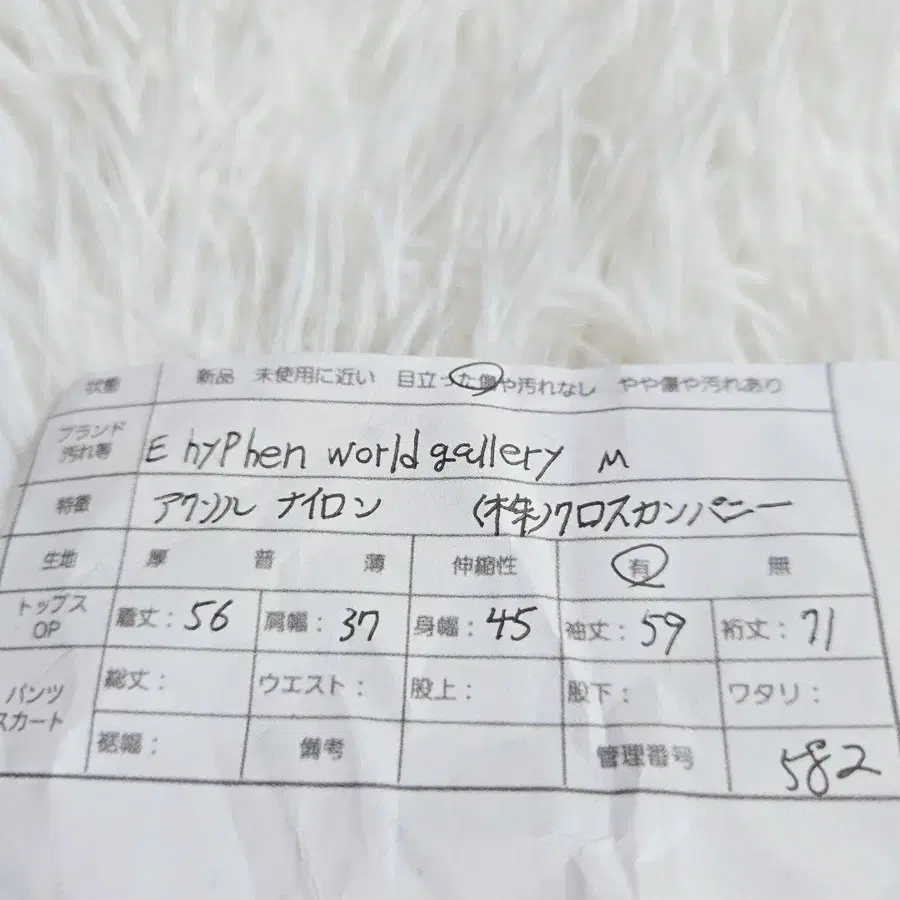 状態 新品 未使用に近い 目立った傷や汚れなし やや傷や汚れあり
ブランド 汚れ等 E hyphen world gallery M
特徴 アクリル ナイロン (株)クロスカンパニー
生地 厚 普 薄 伸縮性 有 無
トップス OP 着丈：56 肩幅：37 身幅：45 袖丈：59 裄丈：71
パンツ スカート 総丈： ウエスト： 股上： 股下： ワタリ：
裾幅： 備考 管理番号 582